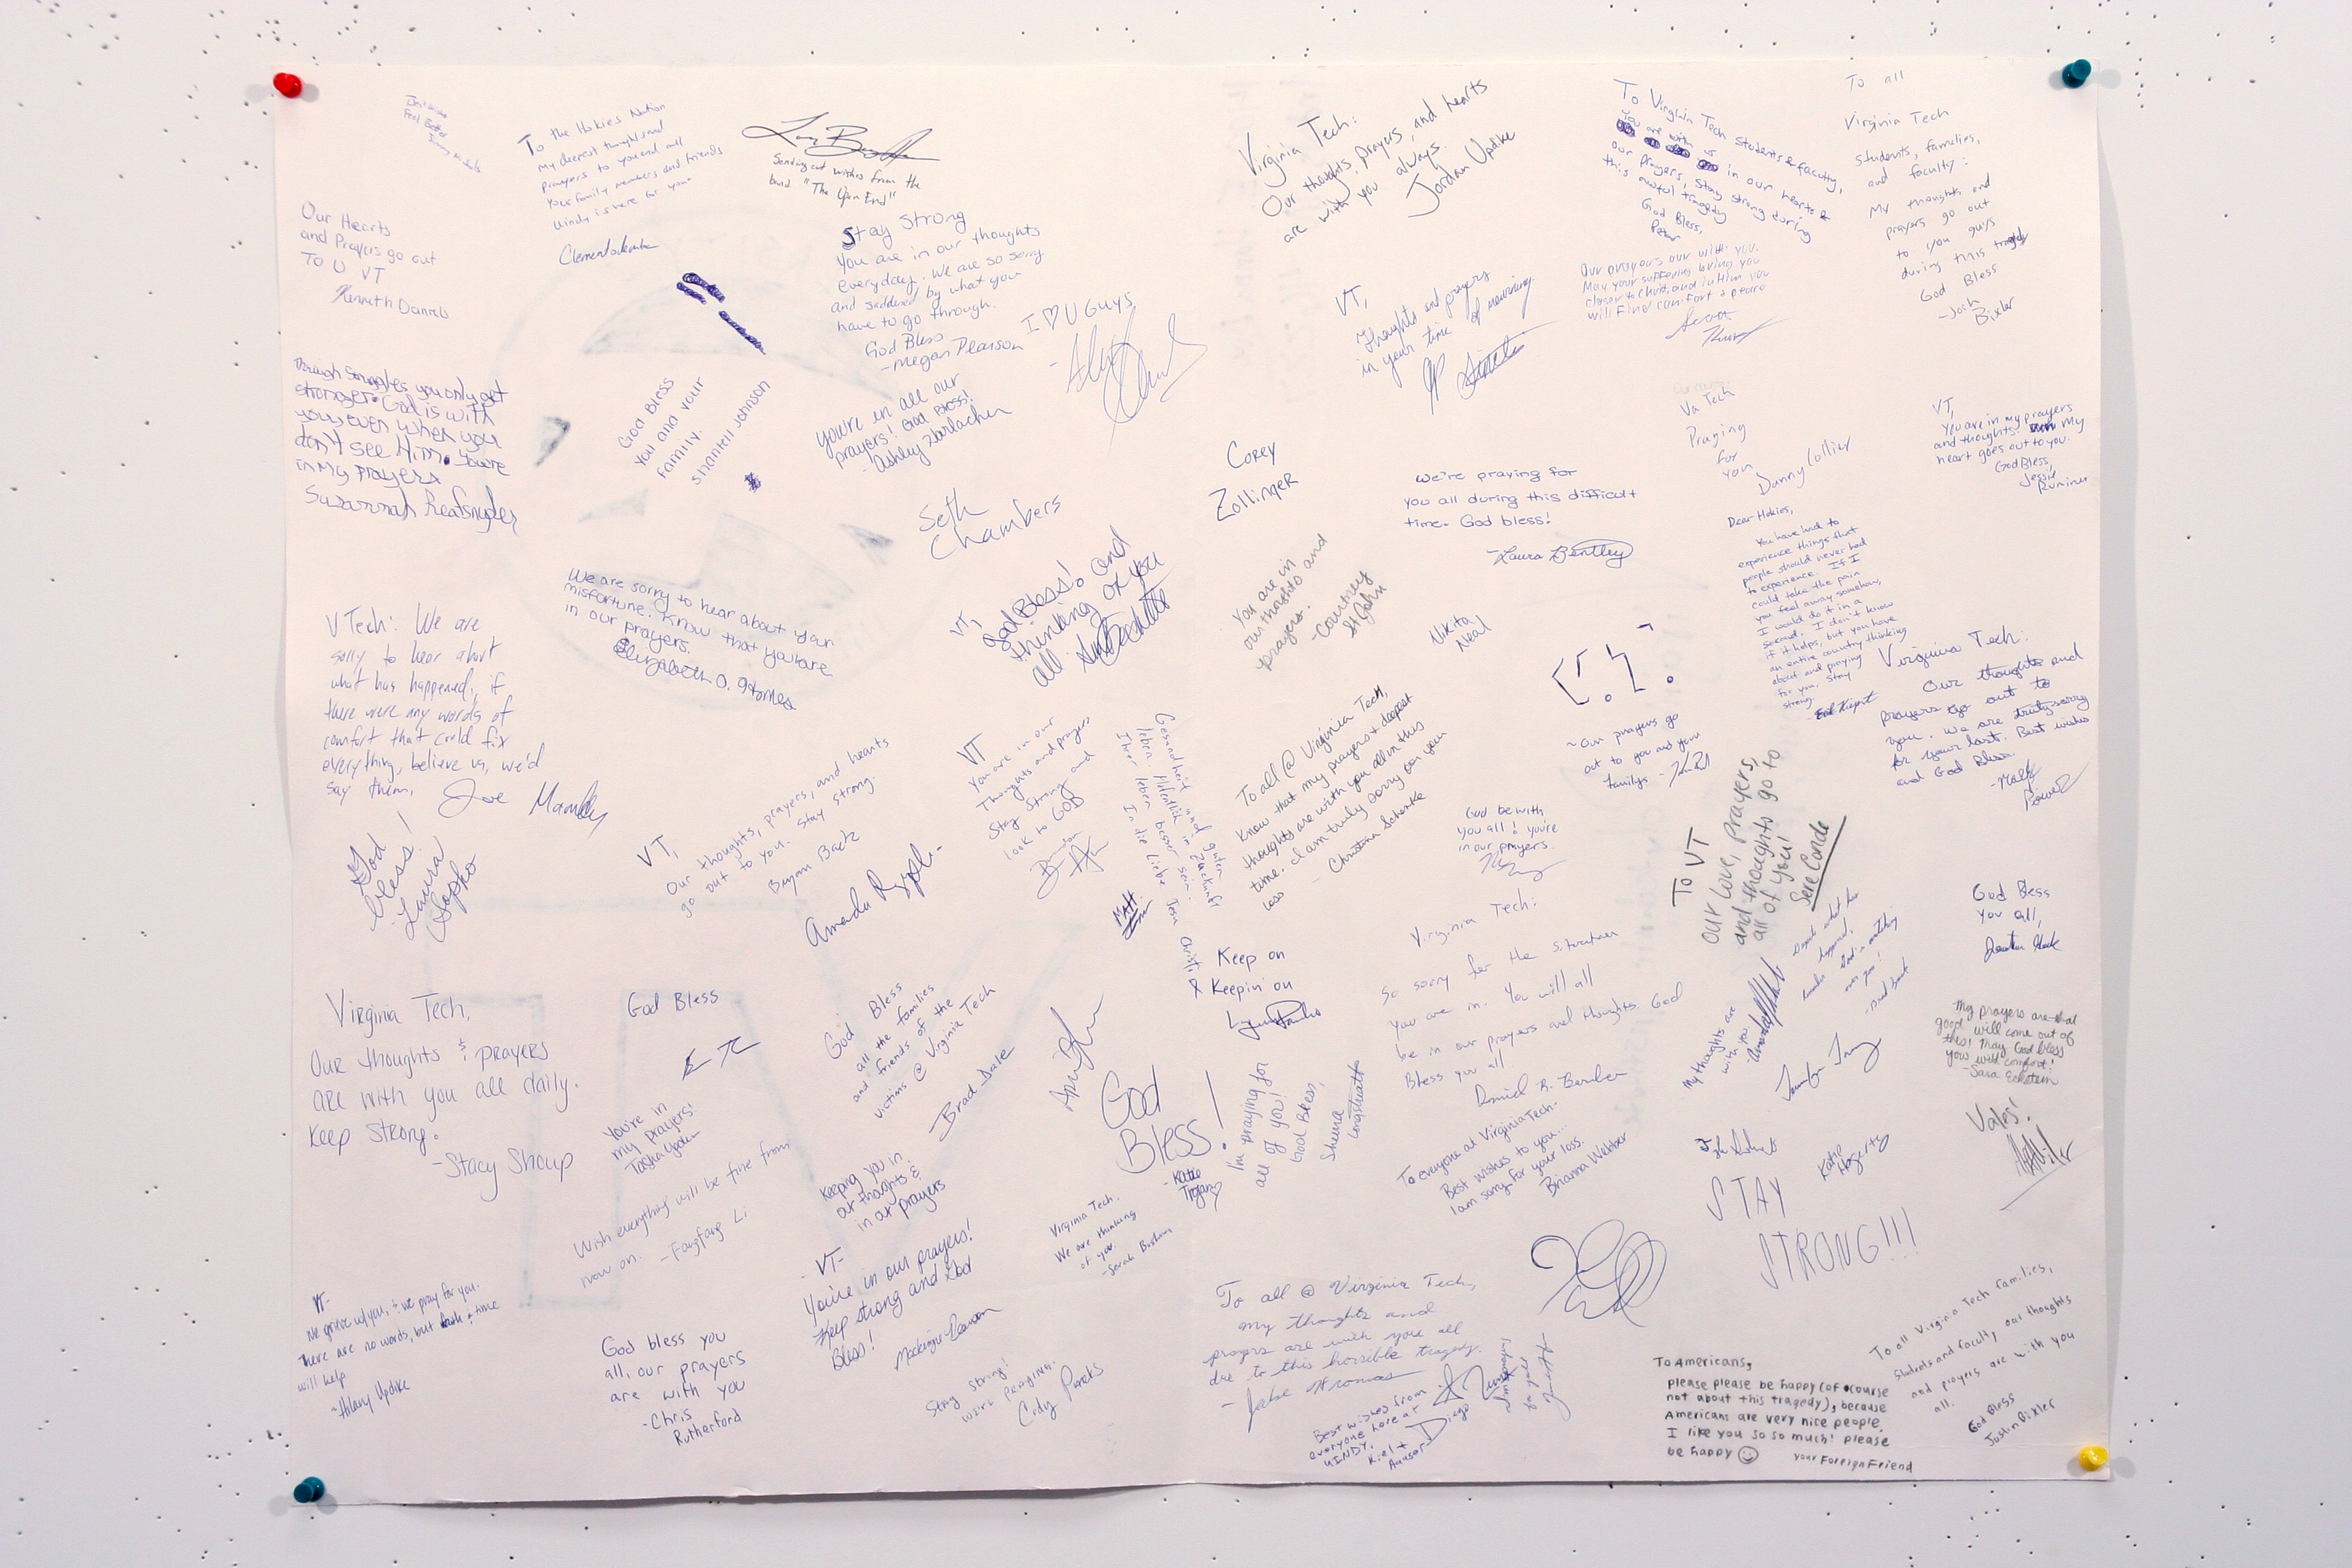 Feel Better
To the Hokies Nation
My deepest thoughts and
prayers to you and all
your family members and friends
Uindy is here for you"
Sending out wishes from the
band "The Open End"
Our Hearts
and Prayers go out
To U VT
Kenneth Daniels
Stay Strong
You are in our thoughts
everyday. We are so sorry
and saddened by what you
have to go through.
God Bless
-Megan Pearson
I ♡ U Guys
Virginia Tech:
Our thoughts, prayers, and hearts
are with you always.
Jordan Updike
To Virginia Tech Students & faculty,
You are with us in our hearts &
our prayers, stay strong during
this awful tragedy
God Bless,
Peter
To all
Virginia Tech
students, families,
and faculty:
My thoughts and
prayers go out
to you guys
during this tragedy
God Bless
-Josh
Bixler
VT,
Thoughts and prayers
in your time of mourning.
Our prayers our with you.
May your suffering bring you
closer to Christ, and in Him you
will find comfort & peace
Scott
Through struggles you only get
stronger. God is with
you, even when you
don't see Him. You're
in my prayers
Susannah Reafsnyder
God Bless
you and your
family.
Shantell Johnson
You're in all our
prayers! God Bless!
-Ashley Horlacher
Seth
Chambers
Corey
Zollinger
We're praying for
you all during this difficult
time. God bless!
-Laura Bentley
Va Tech
Praying
for
you
Danny Collier
VT,
You are in my prayers
and thoughts. My
heart goes out to you.
God Bless,
Jessie
Ruminer
Dear Hokies,
You have had to
experience things that
people should never had
to experience. If I
could take the pain
you feel away somehow,
I would do it in a
second. I don't know
if it helps, but you have
an entire country thinking
about and praying
for you. Stay
strong.
VTech: We are
sorry to hear about
what has happened, if
there were any words of
comfort that could fix
everything, believe us, we'd
say them.
Joe
We are sorry to hear about your
misfortune. Know that you are
in our prayers.
Elizabeth O.
VT,
God Bless! and
thinking of you
all
You are in
our thoughts and
prayers.
-Courtney
St John
Nikita
Neal
~Our prayers go
out to you and your
familys -
Virginia Tech:
Our thoughts and
prayers go out to
you. We are truly sorry
for your lost. Best wishes
and God Bless
God
bless!
Laura
Sapko
VT,
Our thoughts, prayers, and hearts
go out to you. Stay strong.
Bryan Bach
Amanda
VT
You are in our
Thoughts and prayers
Stay Strong and
look to GOD
Matt
To all @ Virginia Tech,
Know that my prayers & deepest
thoughts are with you all in this
time. I am truly sorry for your
loss
- Christina Schenke
God be with
you all! you're
in our prayers.
To VT
our love, prayers,
and thoughts go to
all of you!
Sere Conde
God Bless
you all,
Virginia Tech,
Our thoughts & prayers
are with you all daily.
Keep Strong.
-Stacy Shoup
God Bless
You're in
my prayers!
God Bless
all the families
and friends of the
victims @ Virginia Tech
Brad Dale
Keep on
& Keepin' on
Virginia Tech:
So sorry for the situation
you are in. You will all
be in our prayers and thoughts. God
Bless you all.
Daniel R.
My thoughts are
with you.
My prayers are that
good will come out of
this! May God bless
you with comfort!
-Sara Eckstein
God
Bless!
-Katie
Trojan ♡
I'm praying for
all of you!
God Bless,
Sheena
Longstreath
To everyone at Virginia Tech-
Best wishes to you...
I am sorry for your loss.
Brianna Webber
Katie
Hagerty
Vales!
STAY
STRONG!!!
Wish everything will be fine from
now on. -Fangfang Li
Keeping you in
our thoughts &
in our prayers
Virginia Tech.
We are thinking
of you.
VT-
You're in our prayers!
Keep strong and God
Bless!
Mackenzie Pearson
VT-
We grieve w/ you, & we pray for you.
There are no words, but faith & time
will help
~Hilary Updike
God bless you
all, our prayers
are with you
-Chris
Rutherford
Stay strong!
we're praying.
Cody Parks
To all @ Virginia Tech,
my thoughts and
prayers are with you all
due to this horrible tragedy.
- Jake Thomas
Best wishes from
everyone here at
UINDY.
To Americans,
please please be happy (of course
not about this tragedy), because
Americans are very nice people.
I like you so so much! please
be happy ☺
your Foreign Friend
To all Virginia Tech families,
students and faculty, our thoughts
and prayers are with you
all.
God Bless
Justin Bixler